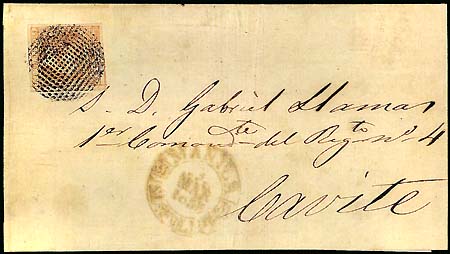 S. D. Gabriel Llamas
1er Comandte del Regto nº 4
Cavite
MANILA